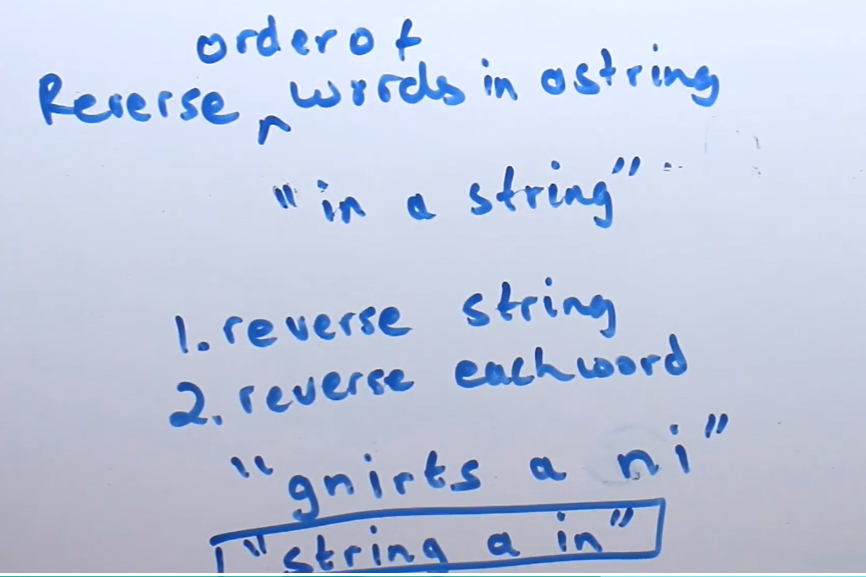 order of
Reverse ^ words in a string
"in a string"
1. reverse string
2. reverse each word
"gnirts a ni"
"string a in"